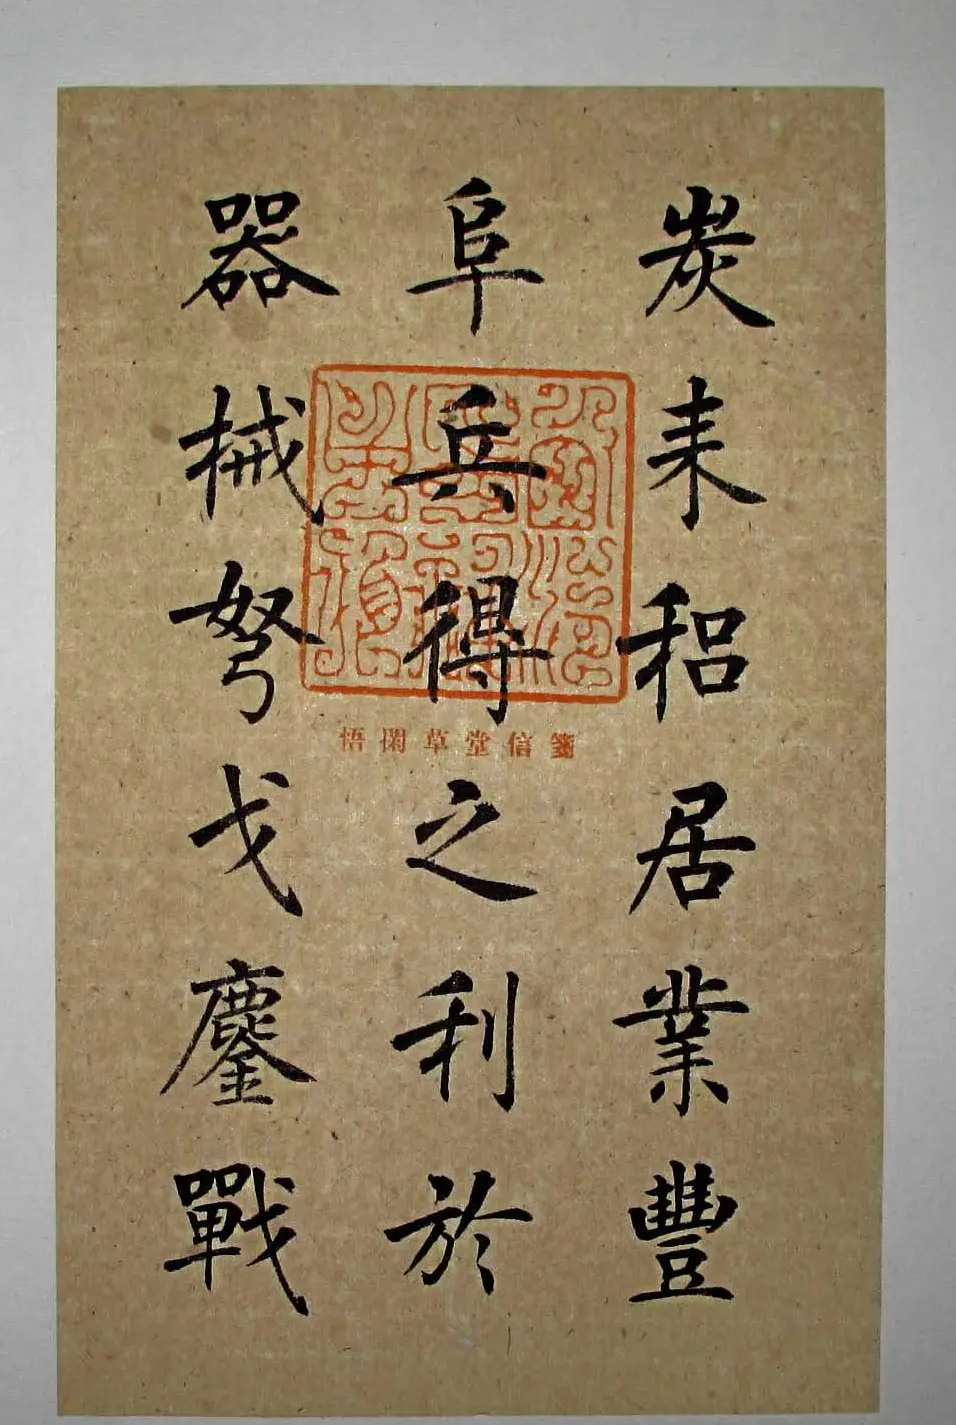 炭耒耜居業豐
阜兵得之利於
器械弩戈鏖戰
悟閑草堂信箋